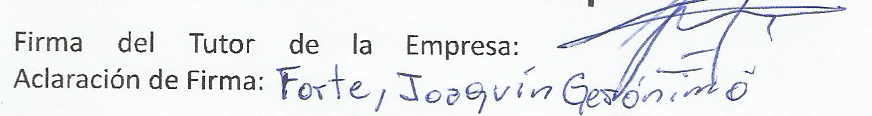 Firma del Tutor de la Empresa:
Aclaración de Firma: Forte, Joaquín Gerónimo